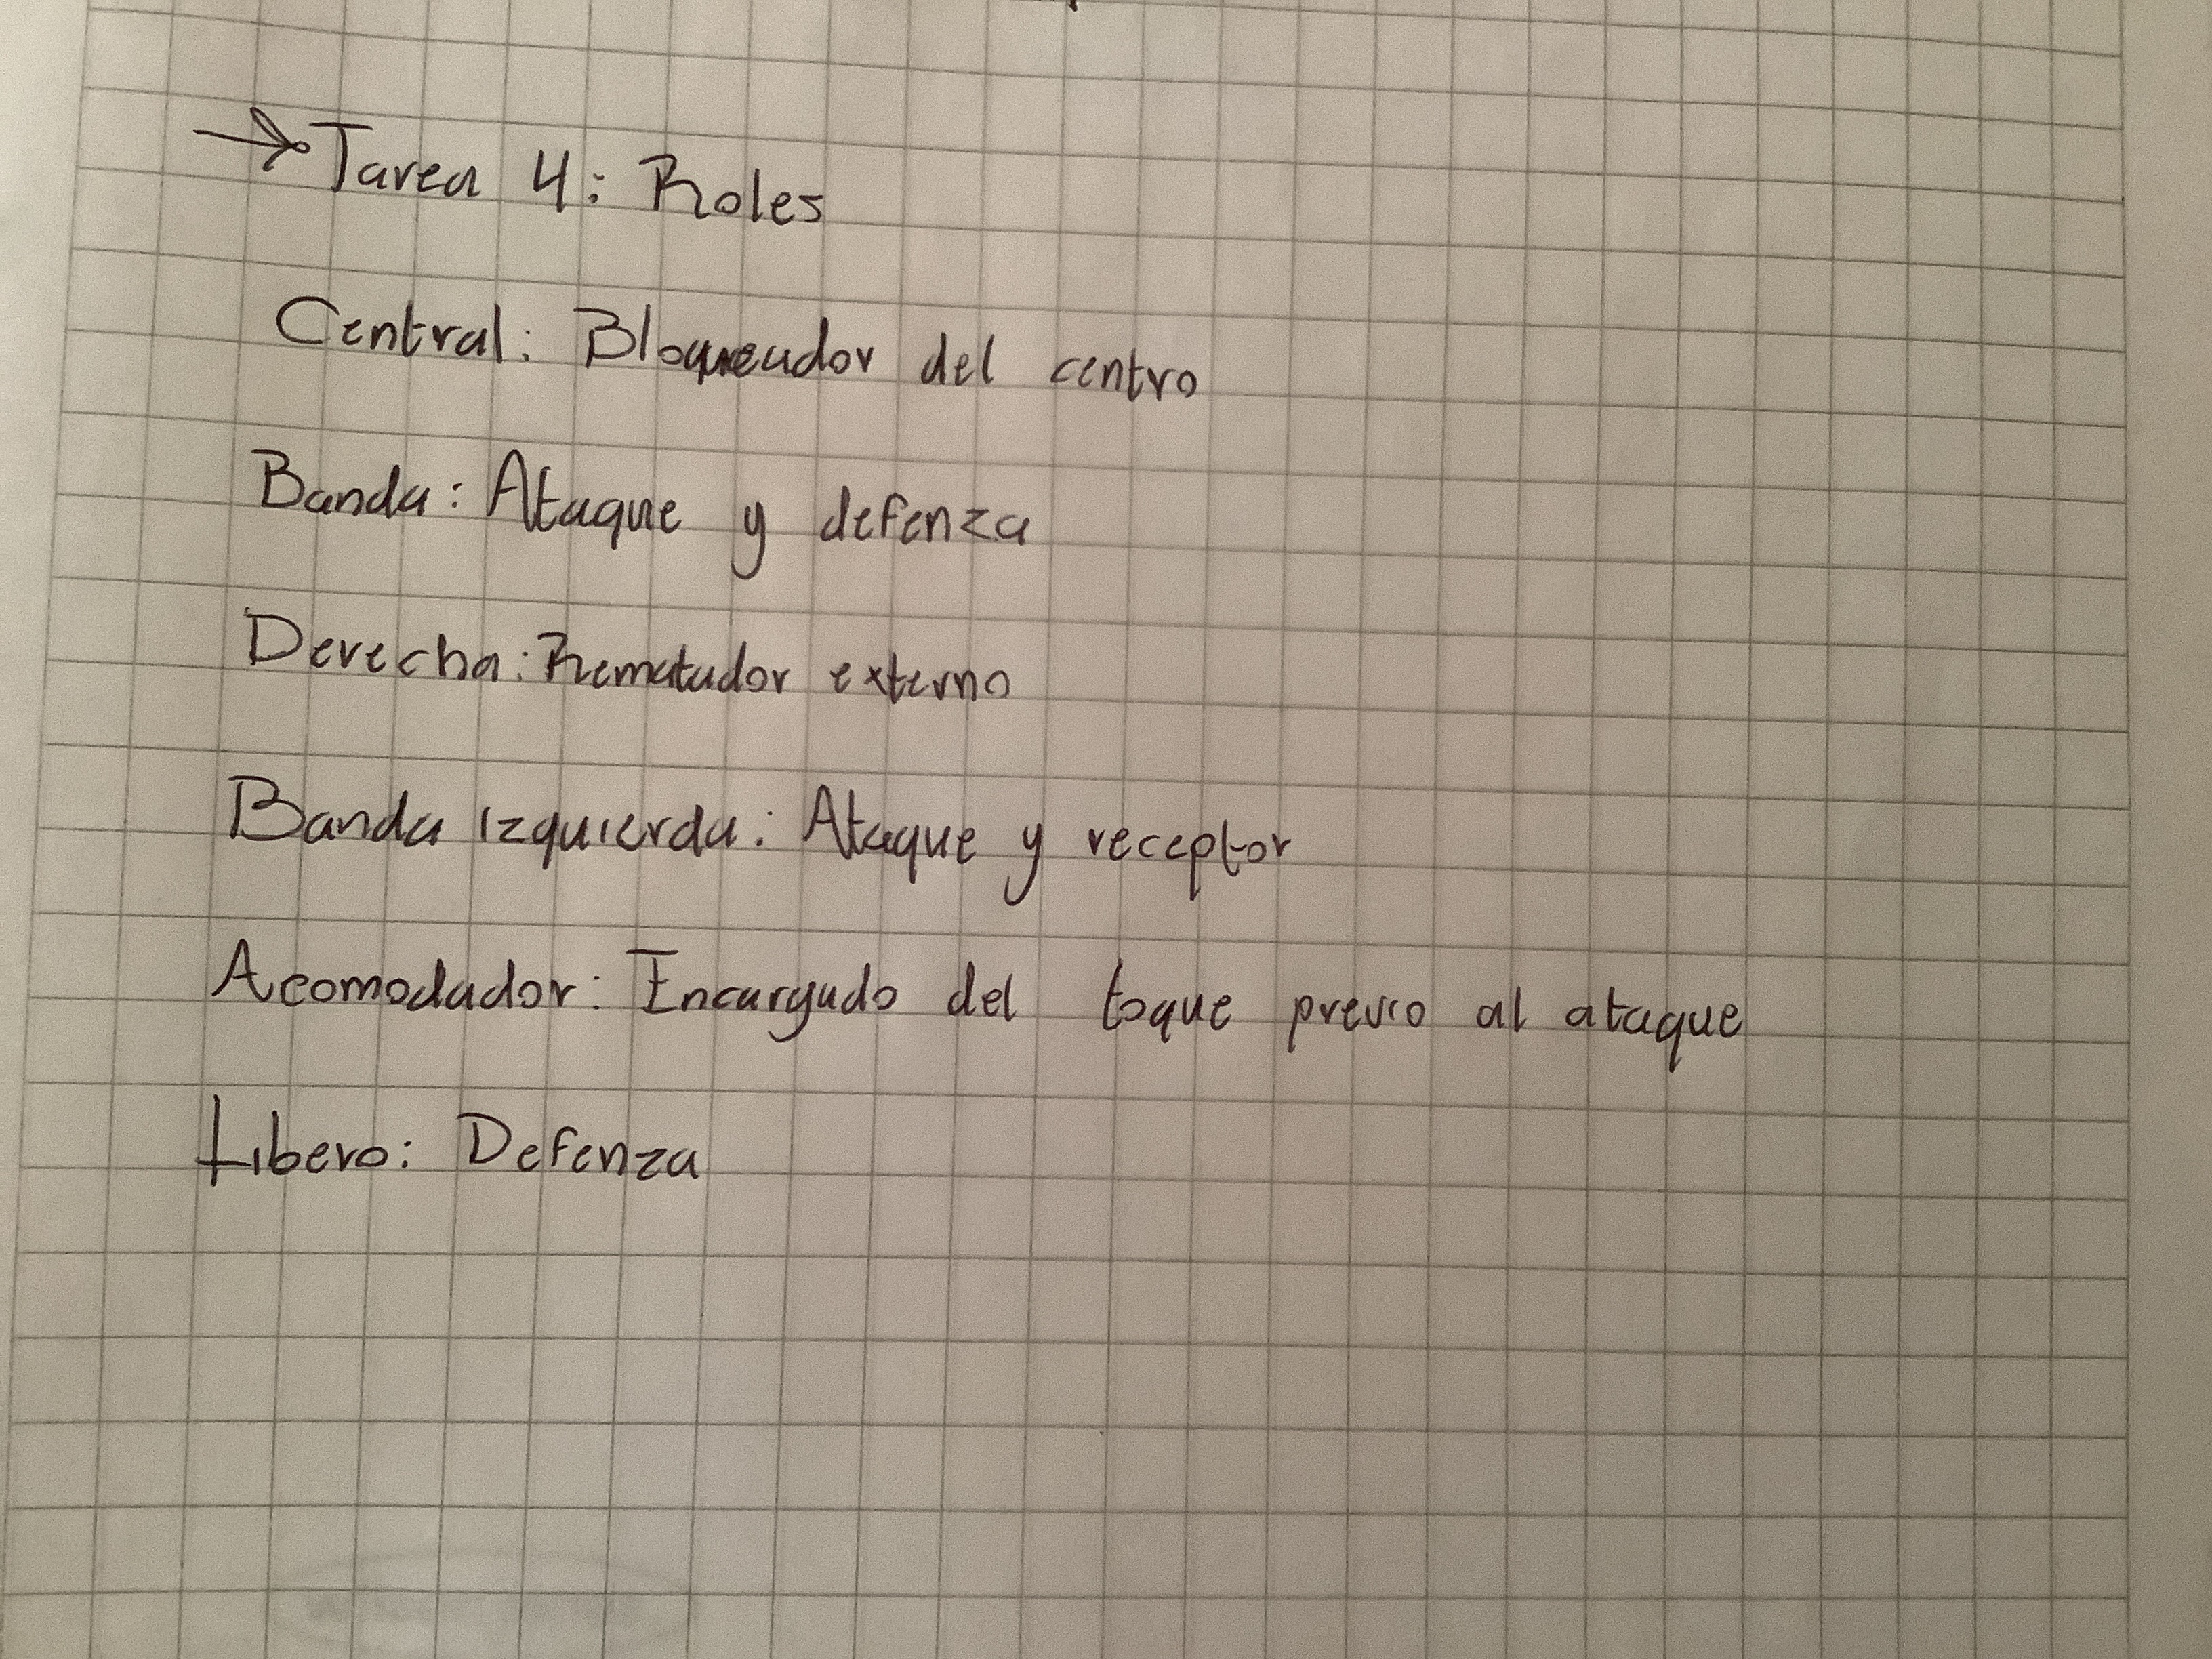 → Tarea 4: Roles
Central: Bloqueador del centro
Banda: Ataque y defenza
Derecha: Rematador externo
Banda izquierda: Ataque y receptor
Acomodador: Encargado del toque previo al ataque
Libero: Defenza